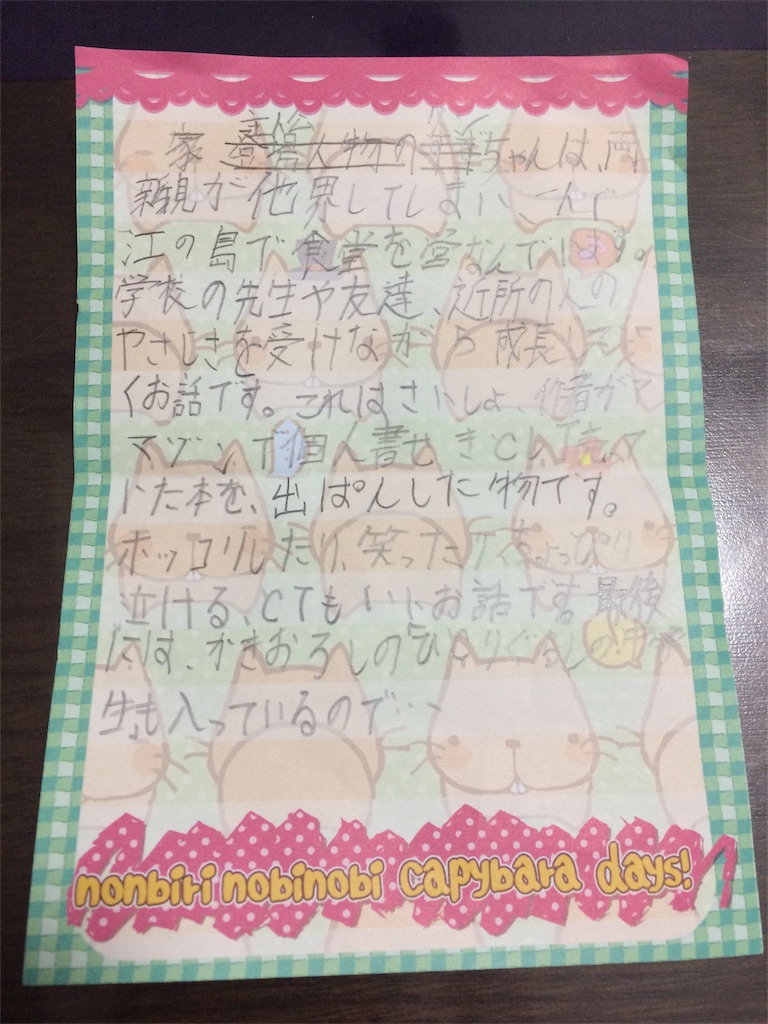 家 登場人物の ちゃんは、両
親が他界してしまい、一人で
江の島で食堂を営なんでいます。
学校の先生や友達、近所の人の
やさしさを受けながら成長してい
くお話です。これはさいしょ、作者がア
マゾンで個人書せきとして売って
いた本を、出ぱんした物です。
ホッコリしたり、笑ったり、ちょっぴり
泣ける、とてもいいお話です。最後
には、かきおろしの「ひとりぐらしの
生」も入っているので…、
nonbiri nobinobi capybara days!